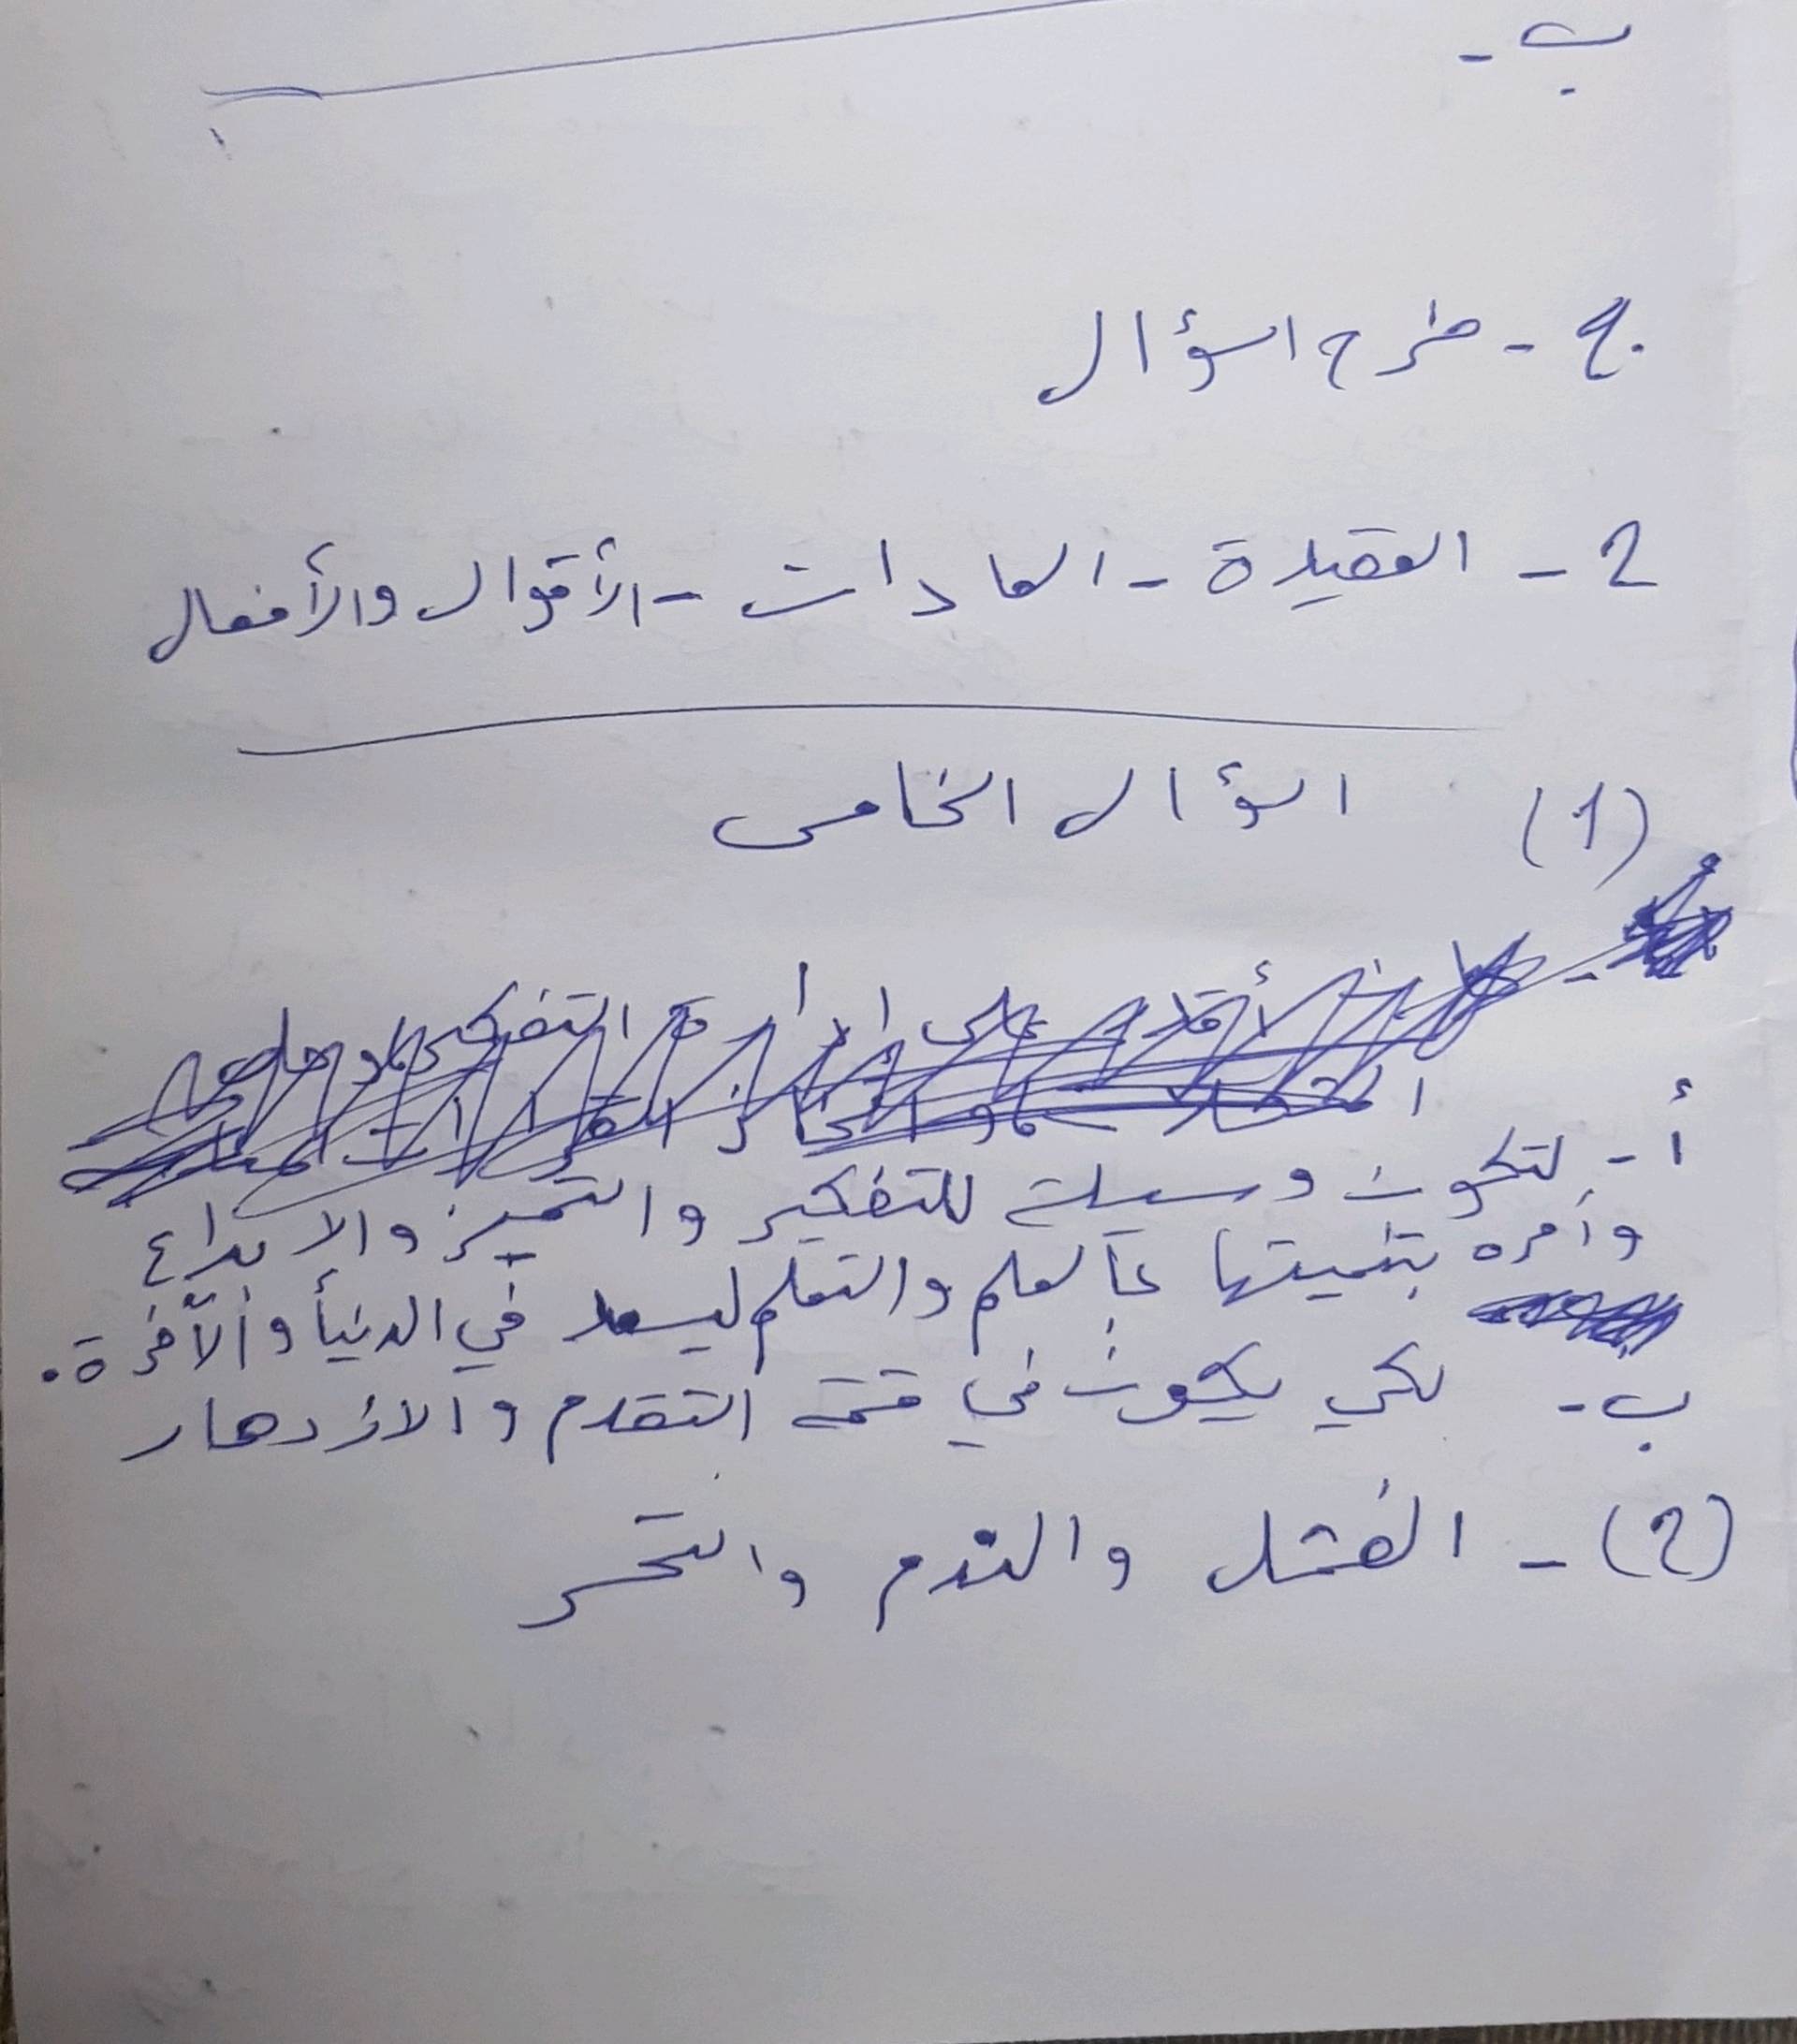 ب -
ج - طرح السؤال
2 - العقيدة - العادات - الأقوال والأفعال
(1) السؤال الخامس
على إدارة التفكير
أ - لتكون وسيلة للتفكير والتميز والابداع
وأمره بتنميتها بالعلم والتعلم ليسعد في الدنيا والآخرة.
ب - لكي يكون في قمة التقدم والازدهار
(2) - الفشل والندم والتحسر